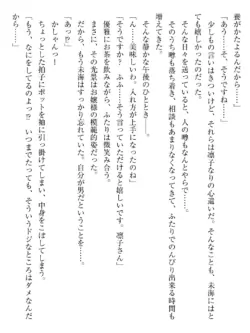 義がかたよるんだから……」
「あっ……そうですね」
少しもの言いはきついけど、それらは凛子なりの心遣い。そんなことも、未海には
嬉しかった。
そんな日々を送っていたけれど……
そのうち噂も落ち着き、相談もあまりなくなってきて、ふたりでのんびり出来る時間も
増えてきた。
そんな静かな午後のひととき――。
「ん……美味しいわ、入れ方が上手になったのね」
「そうですか？　ふふ……そう言っていただけると嬉しいです。凛子さん」
優雅にお茶を飲みながら、ふたりは微笑み合う。
まさに、その光景はお嬢様の模範的な姿だった。
だから、もう未海はすっかり忘れていた。自分が男だということを……
「あっ!?」
かしゃんっ！
ちょっとした拍子にポットを袖に引っ掛けてしまい、中身をこぼしてしまう。
「もう、なにをしてるのよっ!?　いつまでたっても、そういうドジなところはダメなんだ
から……」